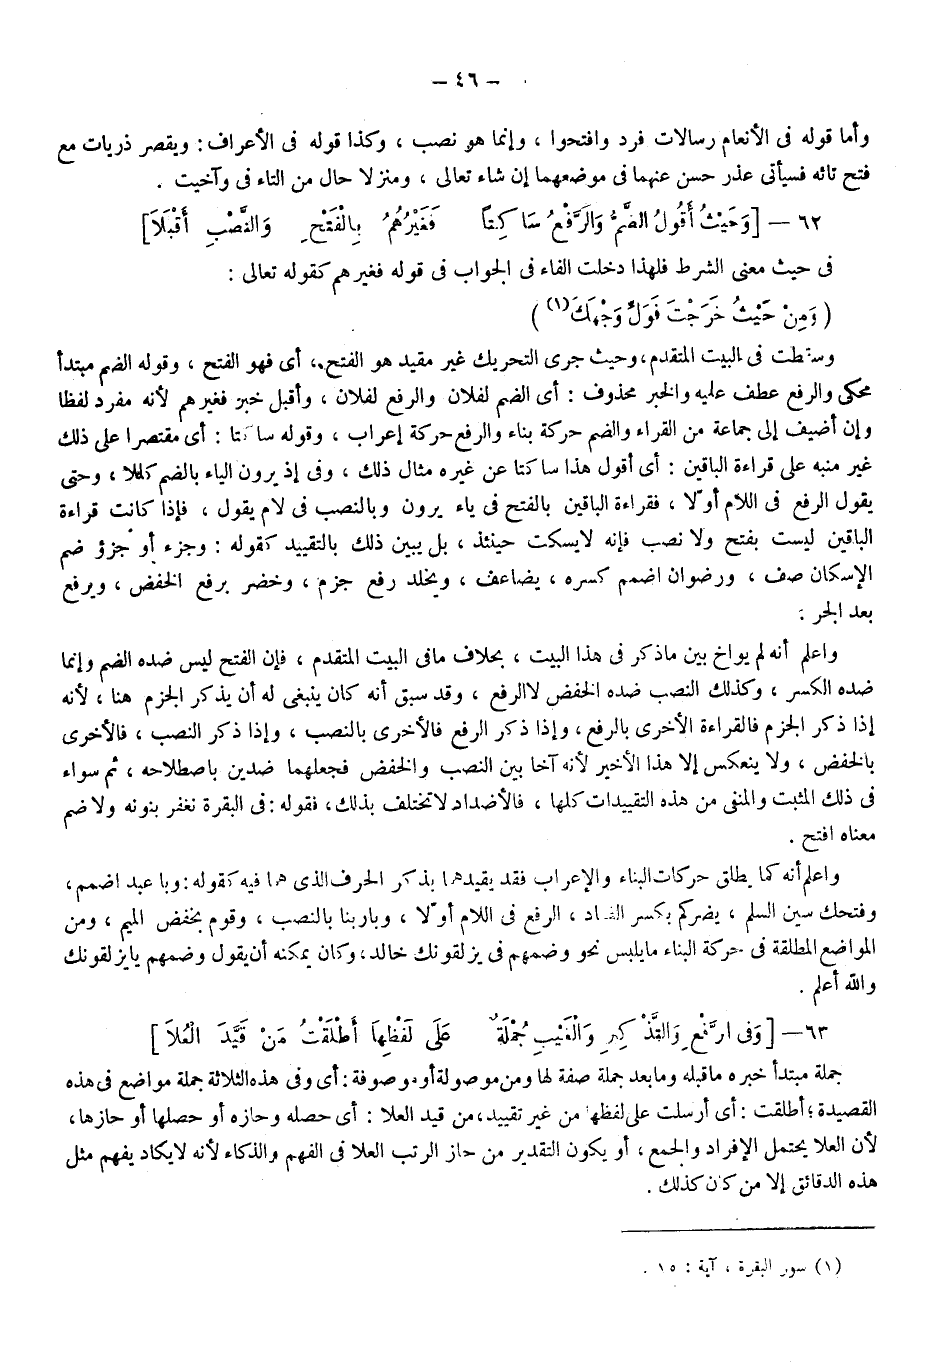 – ٤٦ –
وأما قوله فى الأنعام رسالات فرد وافتحوا ، وإنما هو نصب ، وكذا قوله فى الأعراف : ويقصر ذريات مع
فتح تائه فسيأتى عذر حسن عنهما فى موضعهما إن شاء تعالى ، ومنزلا حال من التاء فى وآخيت .
٦٢ – [وَحَيْثُ أَقُولُ الضَّمُّ وَالرَّفْعُ سَاكِتاً فَغَيْرُهُمُ بِالْفَتْحِ وَالنَّصْبِ أَقْبَلَا]
فى حيث معنى الشرط فلهذا دخلت الفاء فى الجواب فى قوله فغيرهم كقوله تعالى :
( وَمِنْ حَيْثُ خَرَجْتَ فَوَلِّ وَجْهَكَ(١) )
وسقطت فى البيت المتقدم، وحيث جرى التحريك غير مقيد هو الفتح، أى فهو الفتح ، وقوله الضم مبتدأ
محكى والرفع عطف عليه والخبر محذوف : أى الضم لفلان والرفع لفلان ، وأقبل خبر فغيرهم لأنه مفرد لفظا
وإن أضيف إلى جماعة من القراء والضم حركة بناء والرفع حركة إعراب ، وقوله ساكتا : أى مقتصرا على ذلك
غير منبه على قراءة الباقين : أى أقول هذا ساكتا عن غيره مثال ذلك ، وفى إذ يرون الياء بالضم كللا ، وحتى
يقول الرفع فى اللام أوّلا ، فقراءة الباقين بالفتح فى ياء يرون وبالنصب فى لام يقول ، فإذا كانت قراءة
الباقين ليست بفتح ولا نصب فإنه لايسكت حينئذ ، بل يبين ذلك بالتقييد كقوله : وجزء أو جزؤ ضم
الإسكان صف ، ورضوان اضمم كسره ، يضاعف ، ويخلد رفع جزم ، وخضر برفع الخفض ، ويرفع
بعد الجر :
واعلم أنه لم يواخ بين ماذكر فى هذا البيت ، بخلاف مافى البيت المتقدم ، فإن الفتح ليس ضده الضم وإنما
ضده الكسر ، وكذلك النصب ضده الخفض لاالرفع ، وقد سبق أنه كان ينبغى له أن يذكر الجزم هنا ، لأنه
إذا ذكر الجزم فالقراءة الأخرى بالرفع، وإذا ذكر الرفع فالأخرى بالنصب ، وإذا ذكر النصب ، فالأخرى
بالخفض ، ولا ينعكس إلا هذا الأخير لأنه آخا بين النصب والخفض فجعلهما ضدين باصطلاحه ، ثم سواء
فى ذلك المثبت والمنفى من هذه التقييدات كلها ، فالأضداد لاتختلف بذلك، فقوله : فى البقرة نغفر بنونه ولا ضم
معناه افتح .
واعلم أنه كما يطلق حركات البناء والإعراب فقد يقيدها بذكر الحرف الذى هما فيه كقوله : وبا عبد اضمم ،
وفتحك سين السلم ، يضركم بكسر الضاد ، الرفع فى اللام أوّلا ، وباربنا بالنصب ، وقوم بخفض الميم ، ومن
المواضع المطلقة فى حركة البناء مايلبس نحو وضمهم فى يزلقونك خالد، وكان يمكنه أن يقول وضمهم يايزلقونك
والله أعلم .
٦٣ – [ وَفى الرَّفْعِ وَالتَّذْكِيرِ وَالْغَيْبِ جُمْلَةٌ عَلَى لَفْظِهَا أَطْلَقْتُ مَنْ قَيَّدَ الْعُلَا ]
جملة مبتدأ خبره ماقبله ومابعد جملة صفة لها ومن موصولة أوموصوفة : أى وفى هذه الثلاثة جملة مواضع فى هذه
القصيدة ؛ أطلقت : أى أرسلت على لفظها من غير تقييد، من قيد العلا : أى حصله وحازه أو حصلها أو حازها ،
لأن العلا يحتمل الإفراد والجمع ، أو يكون التقدير من حاز الرتب العلا فى الفهم والذكاء لأنه لايكاد يفهم مثل
هذه الدقائق إلا من كان كذلك .
(١) سور البقرة ، آية : ١٥ .